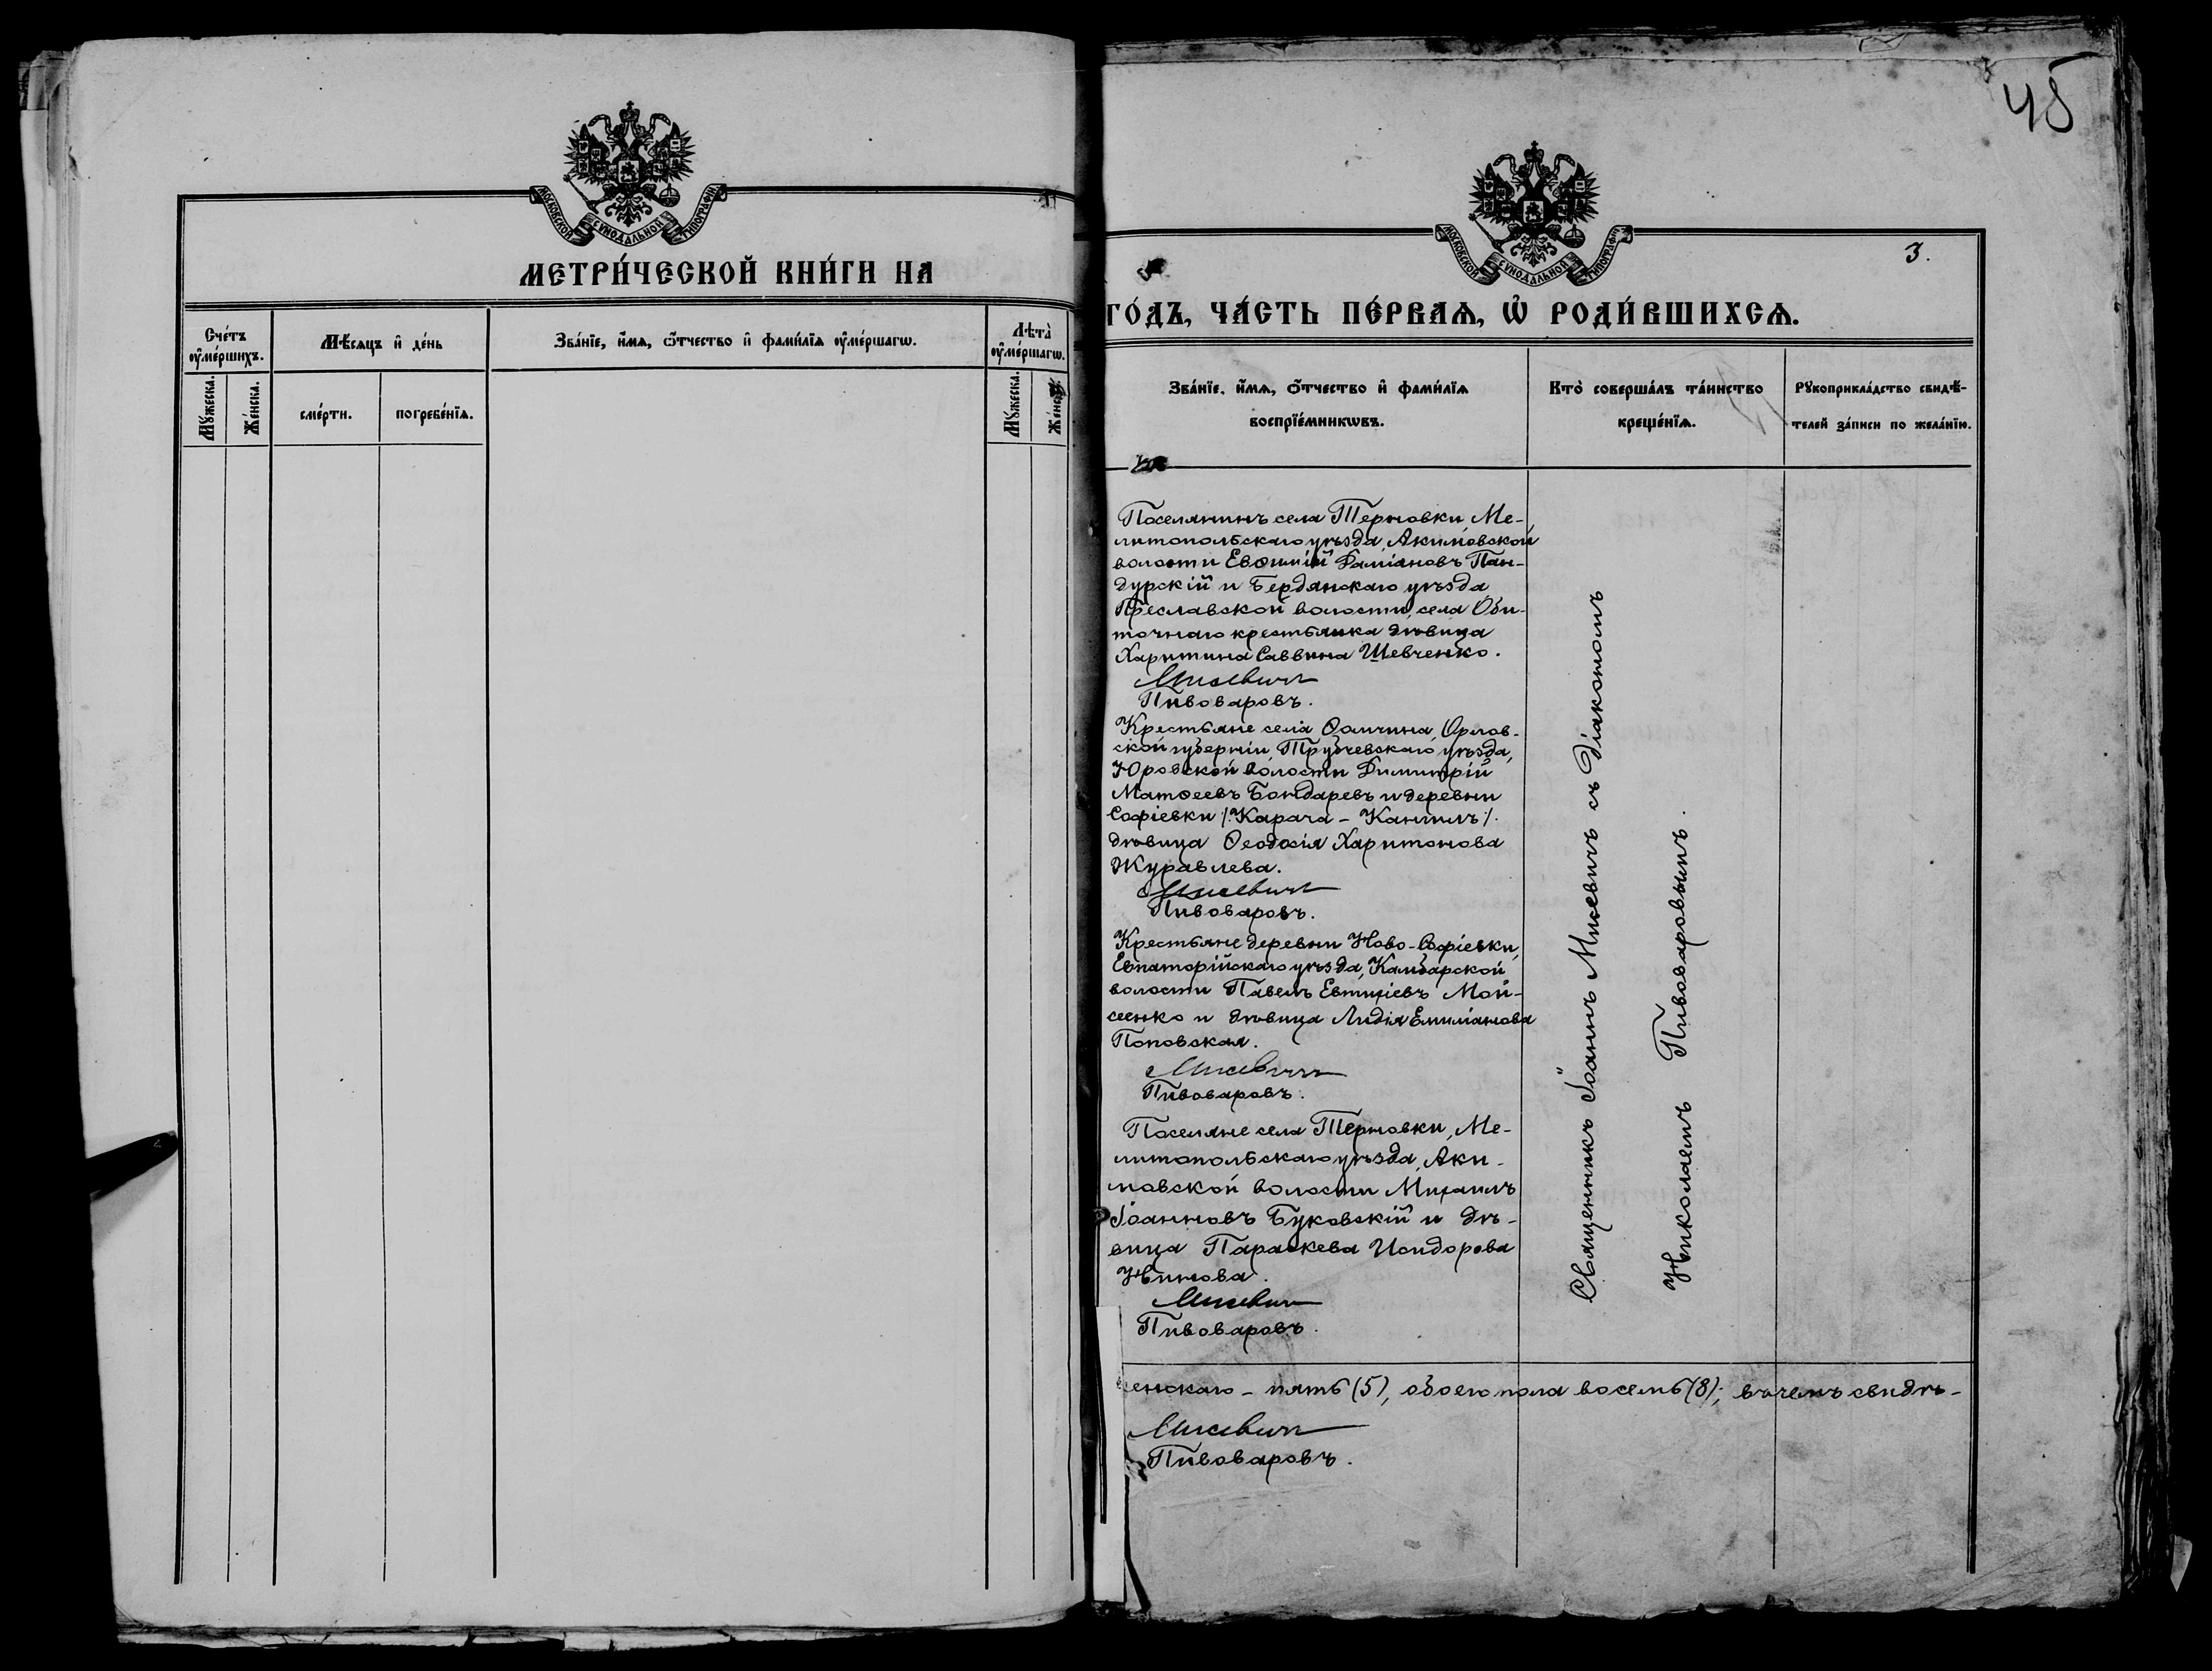 МОСКОВСКОЙ СѴНОДАЛЬНОЙ ТИПОГРАФІИ
МЕТРИ́ЧЕСКОЙ КНИ́ГИ НА
Сче́тъ оумéршихъ.
Мѣ́сяцъ и́ де́нь
Зва́нїе, и́мѧ, ѿ́чество и́ фами́лїѧ оуме́ршагѡ.
Лѣта̀ оуме́ршагѡ.
Мꙋжеска.
Же́нска.
сме́рти.
погребе́нїѧ.
Мꙋжеска.
Же́нска.
45
МОСКОВСКОЙ СѴНОДАЛЬНОЙ ТИПОГРАФІИ
3.
ГО́ДЪ, ЧА́СТЬ ПЕ́РВАѦ, Ѡ҆ РОДИ́ВШИХСѦ.
Зва́нїе, и́мѧ, ѻ́тчество и́ фами́лїѧ
воспрїе́мникѡвъ.
Кто̀ соверша́лъ та́инство
креще́нїѧ.
Рꙋкоприкла́дство свидѣ́-
телей за́писи по жела́нїю.
Поселянинъ села Терновки, Ме-
литопольскаго уѣзда, Акимовской
волости Евѳимій Даміановъ Пан-
дурскій и Бердянскаго уѣзда
Преславской волости села Оби-
точнаго крестьянка дѣвица
Харитина Саввина Шевченко.
Мисевичъ
Пивоваровъ.
Крестьяне села Ѳомчина, Орлов-
ской губерніи Трубчевскаго уѣзда,
Юровской волости Димитрій
Матѳеевъ Бондаревъ и деревни
Софіевки /:Карача - Кангилъ:/.
дѣвица Ѳеодосія Харитонова
Журавлева.
Мисевичъ
Пивоваровъ.
Крестьяне деревни Ново-Софіевки,
Евпаторійскаго уѣзда, Камбарской
волости Павелъ Евтихіевъ Мой-
сеенко и дѣвица Лидія Емиліанова
Поповская.
Мисевичъ
Пивоваровъ.
Поселяне села Терновки, Ме-
литопольскаго уѣзда, Аки-
мовской волости Михаилъ
Іоанновъ Буковскій и дѣ-
вица Параскева Исидорова
Нинова.
Мисевичъ
Пивоваровъ.
Священникъ Іоаннъ Мисевичъ съ Діакономъ
Николаемъ Пивоваровымъ.
женскаго - пять (5), обоего пола восемь (8); въ чемъ свидѣ-
Мисевичъ
Пивоваровъ.